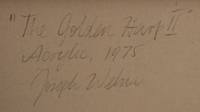 "The Golden Harp II"
Acrylic, 1975
Joseph Weber